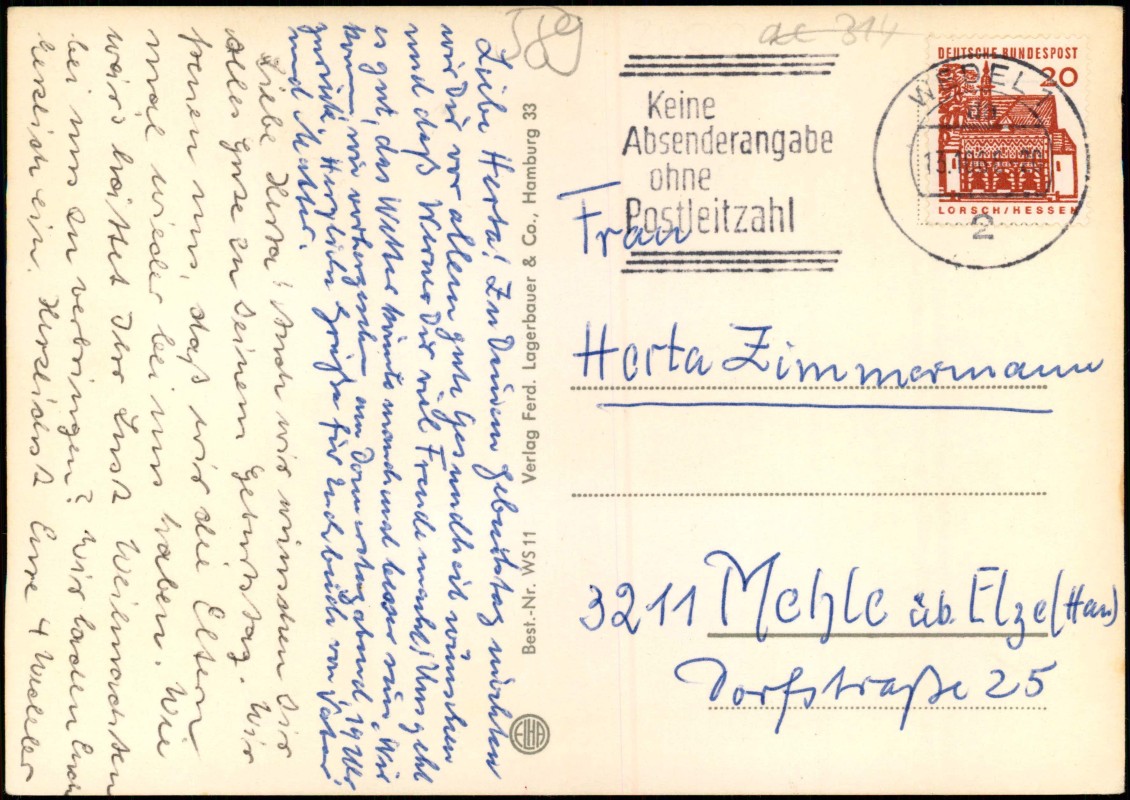 589
ac 314
Liebe Herta! Zu Deinem Geburtstag möchten
wir Dir vor allem gute Gesundheit wünschen
und daß Werner Dir viel Freude macht. Uns geht
es gut, das Wetter könnte manchmal besser sein. Wir
kommen, wie vorhergesehen am Donnerstag abend 19 Uhr
zurück. Herzliche Grüße für Euch beide von Vater
und Mutter.
Liebe Herta! Auch wir wünschen Dir
alles Gute zu Deinem Geburtstag. Wir
freuen uns, daß wir die Eltern
mal wieder bei uns haben. Wie
wär's hättet Ihr Lust Weihnachten
bei uns zu verbringen? Wir laden Euch
herzlich ein. Herzlichst Eure 4 Weseler
Best.-Nr. WS 11 Verlag Ferd. Lagerbauer & Co., Hamburg 33
ELHA
Keine
Absenderangabe
ohne
Postleitzahl
DEUTSCHE BUNDESPOST
20
LORSCH/HESSEN
WESEL 1
2
Frau
Herta Zimmermann
3211 Mehle üb. Elze (Han)
Dorfstraße 25